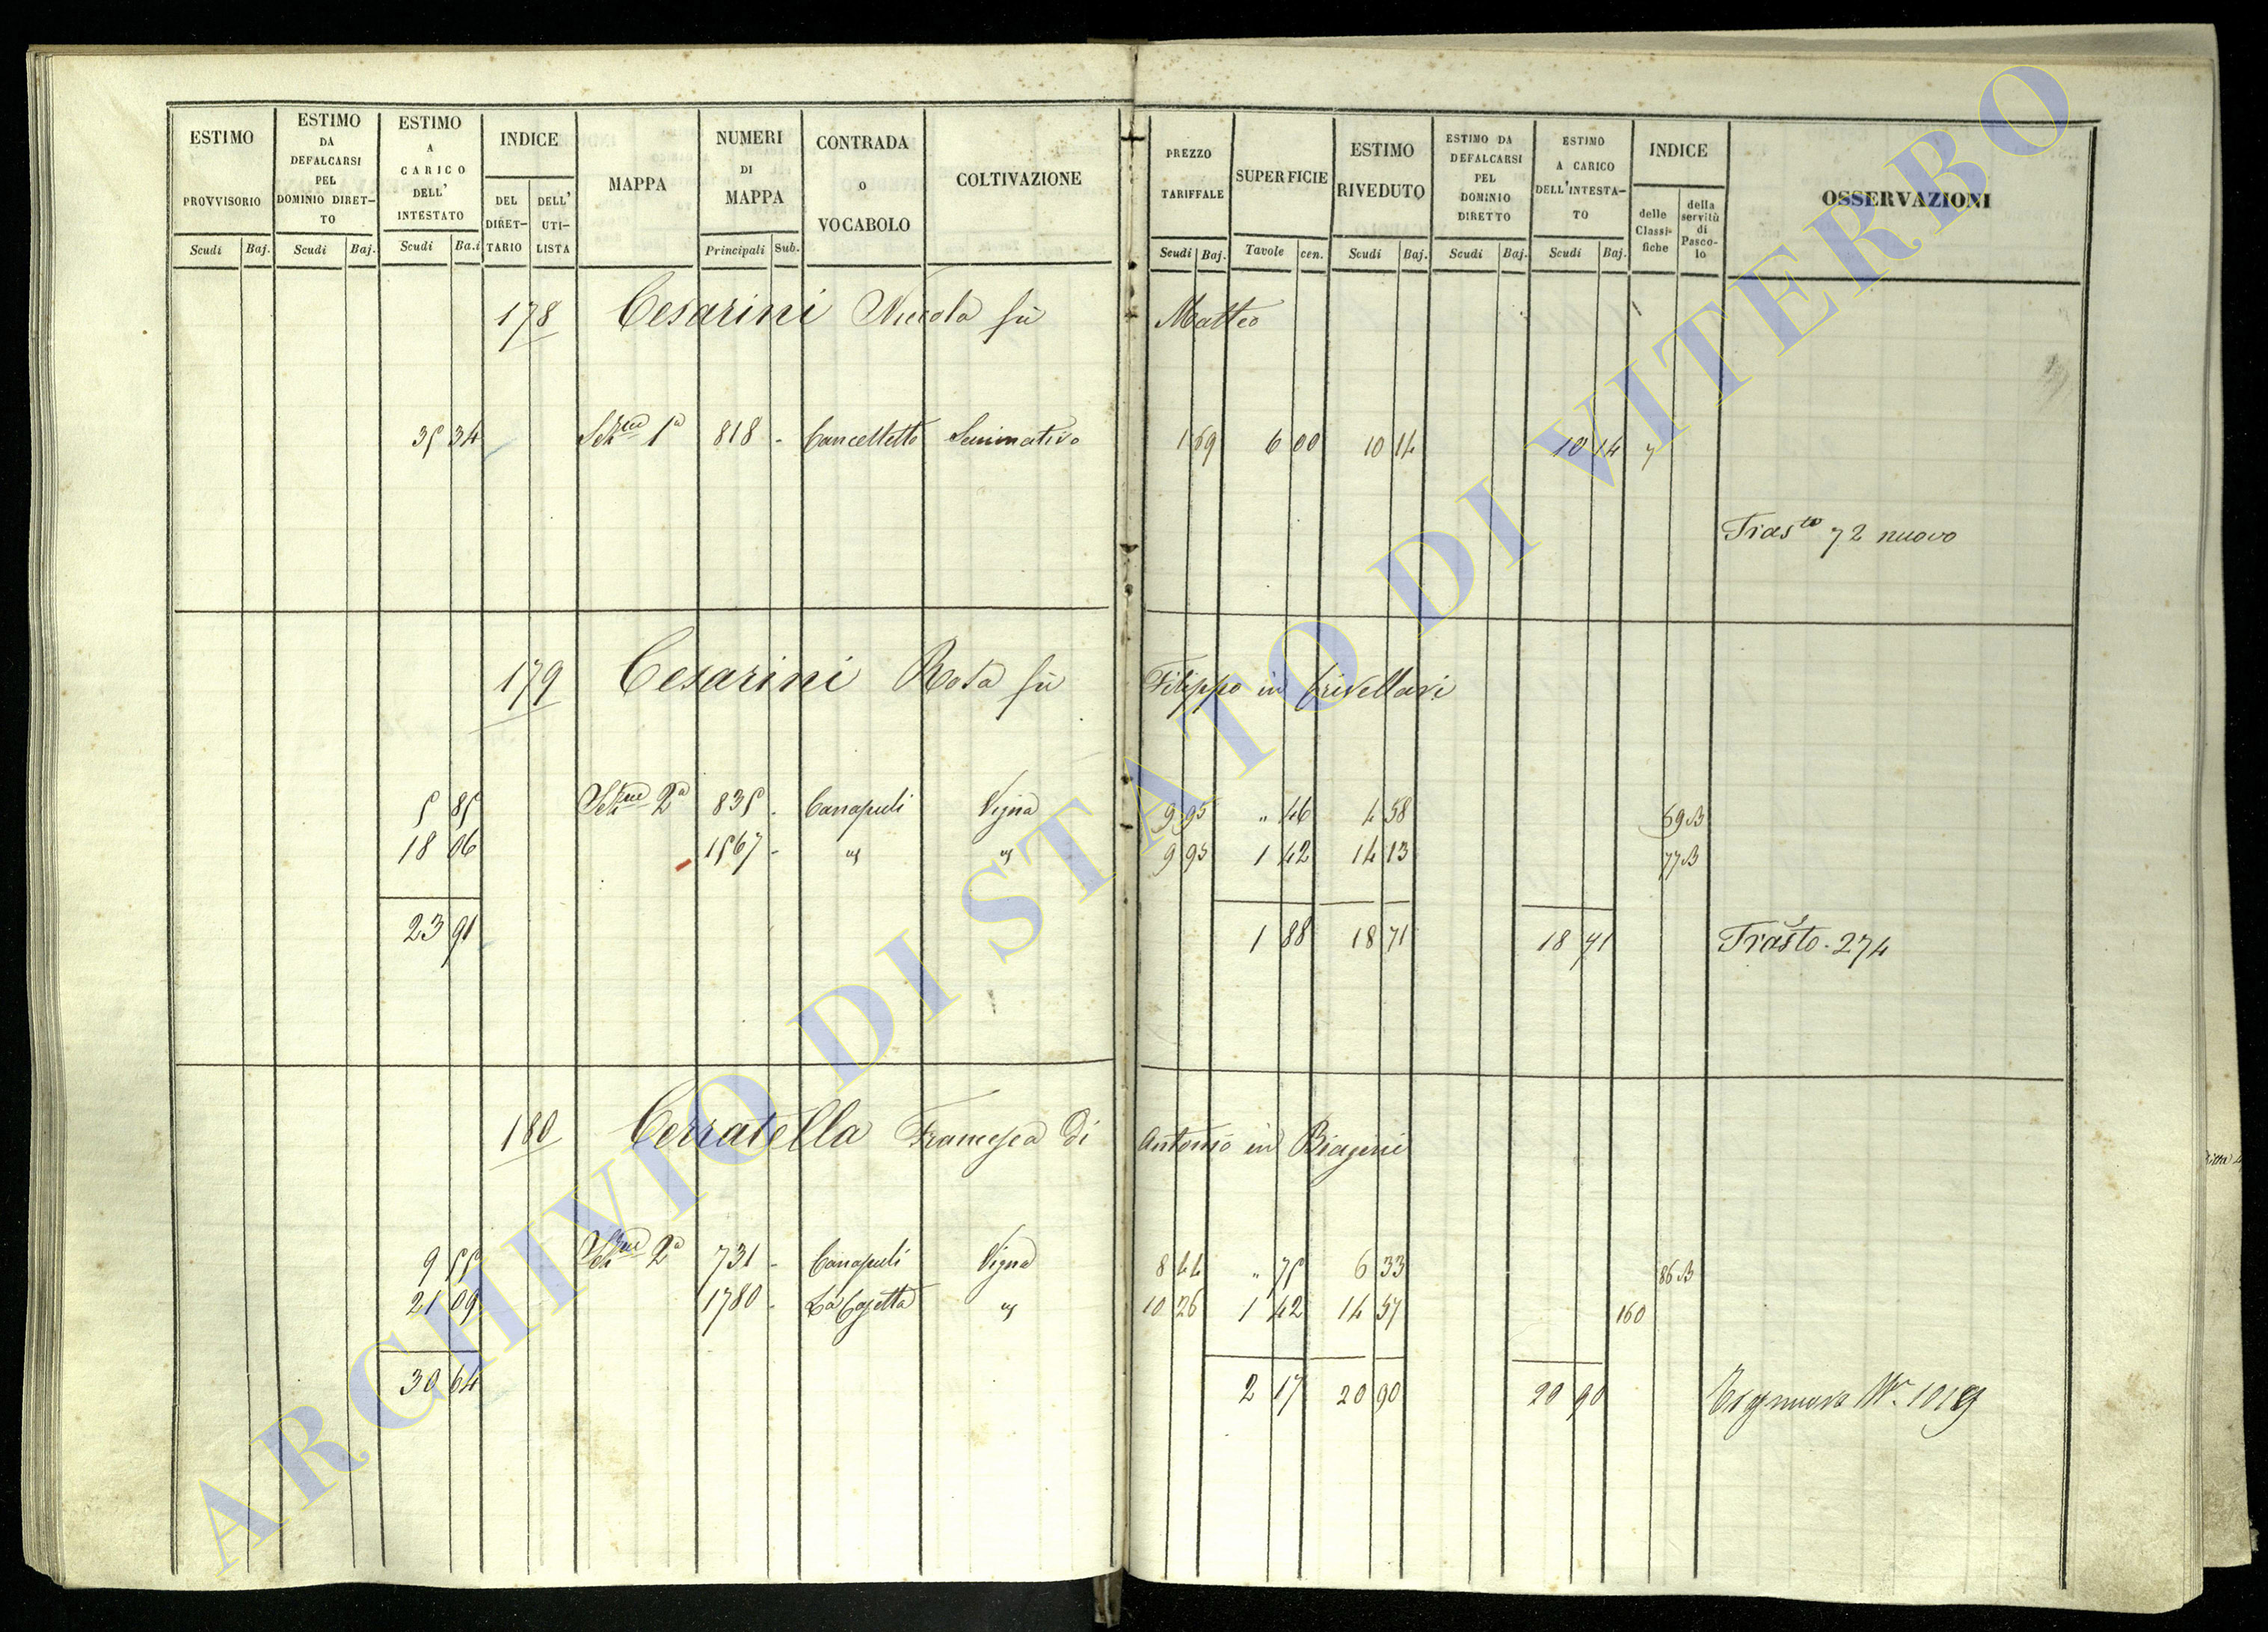 ESTIMO PROVVISORIO
ESTIMO DA DEFALCARSI PEL DOMINIO DIRET-TO
ESTIMO A CARICO DELL' INTESTATO
INDICE
DEL DIRET-TARIO
DELL' UTI-LISTA
MAPPA
NUMERI DI MAPPA
CONTRADA O VOCABOLO
COLTIVAZIONE
PREZZO TARIFFALE
SUPERFICIE
ESTIMO RIVEDUTO
ESTIMO DA DEFALCARSI PEL DOMINIO DIRETTO
ESTIMO A CARICO DELL'INTESTA-TO
INDICE
delle Classi-fiche
della servitù di Pasco-lo
OSSERVAZIONI
Scudi Baj. Scudi Baj. Scudi Ba.i Principali Sub. Scudi Baj. Tavole cen. Scudi Baj. Scudi Baj. Scudi Baj.
178 Cesarini Niccola fù Matteo
35 34 Sezne 1a 818 - Cancelletto Seminativo 1 69 6 00 10 14 10 14 7
Trasto 72 nuovo
179 Cesarini Rosa fù Filippo in Crivellari
5 85 Sezne 2a 835 - Canapuli Vigna 9 95 " 46 4 58 69 B
18 06 1567 - " " 9 95 1 42 14 13 77 B
23 91 1 88 18 71 18 71 Trasto. 274
180 Cerratella Francesca di Antonio in Biagini
9 55 Sezne 2a 731 - Canapuli Vigna 8 44 " 75 6 33 86 B
21 09 1780 - La Casetta " 10 26 1 42 14 57 160
30 64 2 17 20 90 20 90 1019
ARCHIVIO DI STATO DI VITERBO